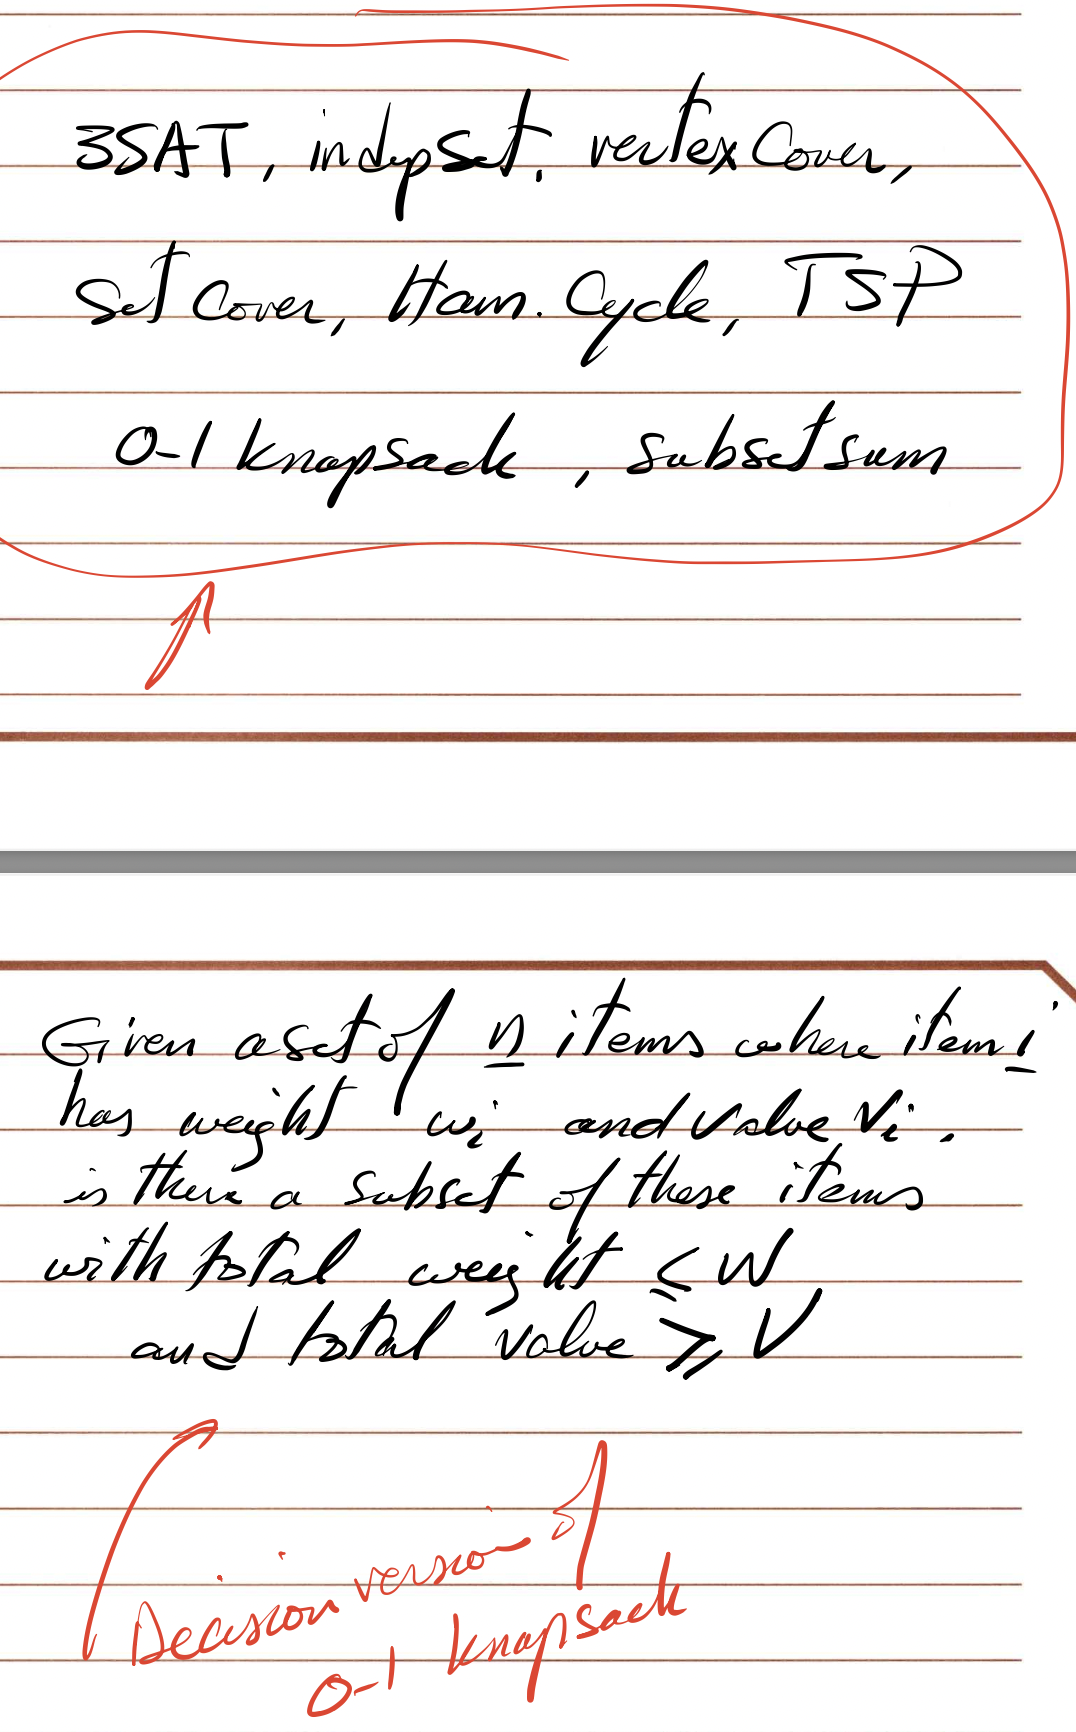 3SAT, indepset, vertex Cover,
Set Cover, Ham. Cycle, TSP
0-1 knapsack, subset sum
Given a set of n items where item i
has weight wi and value vi.
is there a subset of these items
with total weight ≤ W
and total value ≥ V
Decision version of
0-1 knapsack